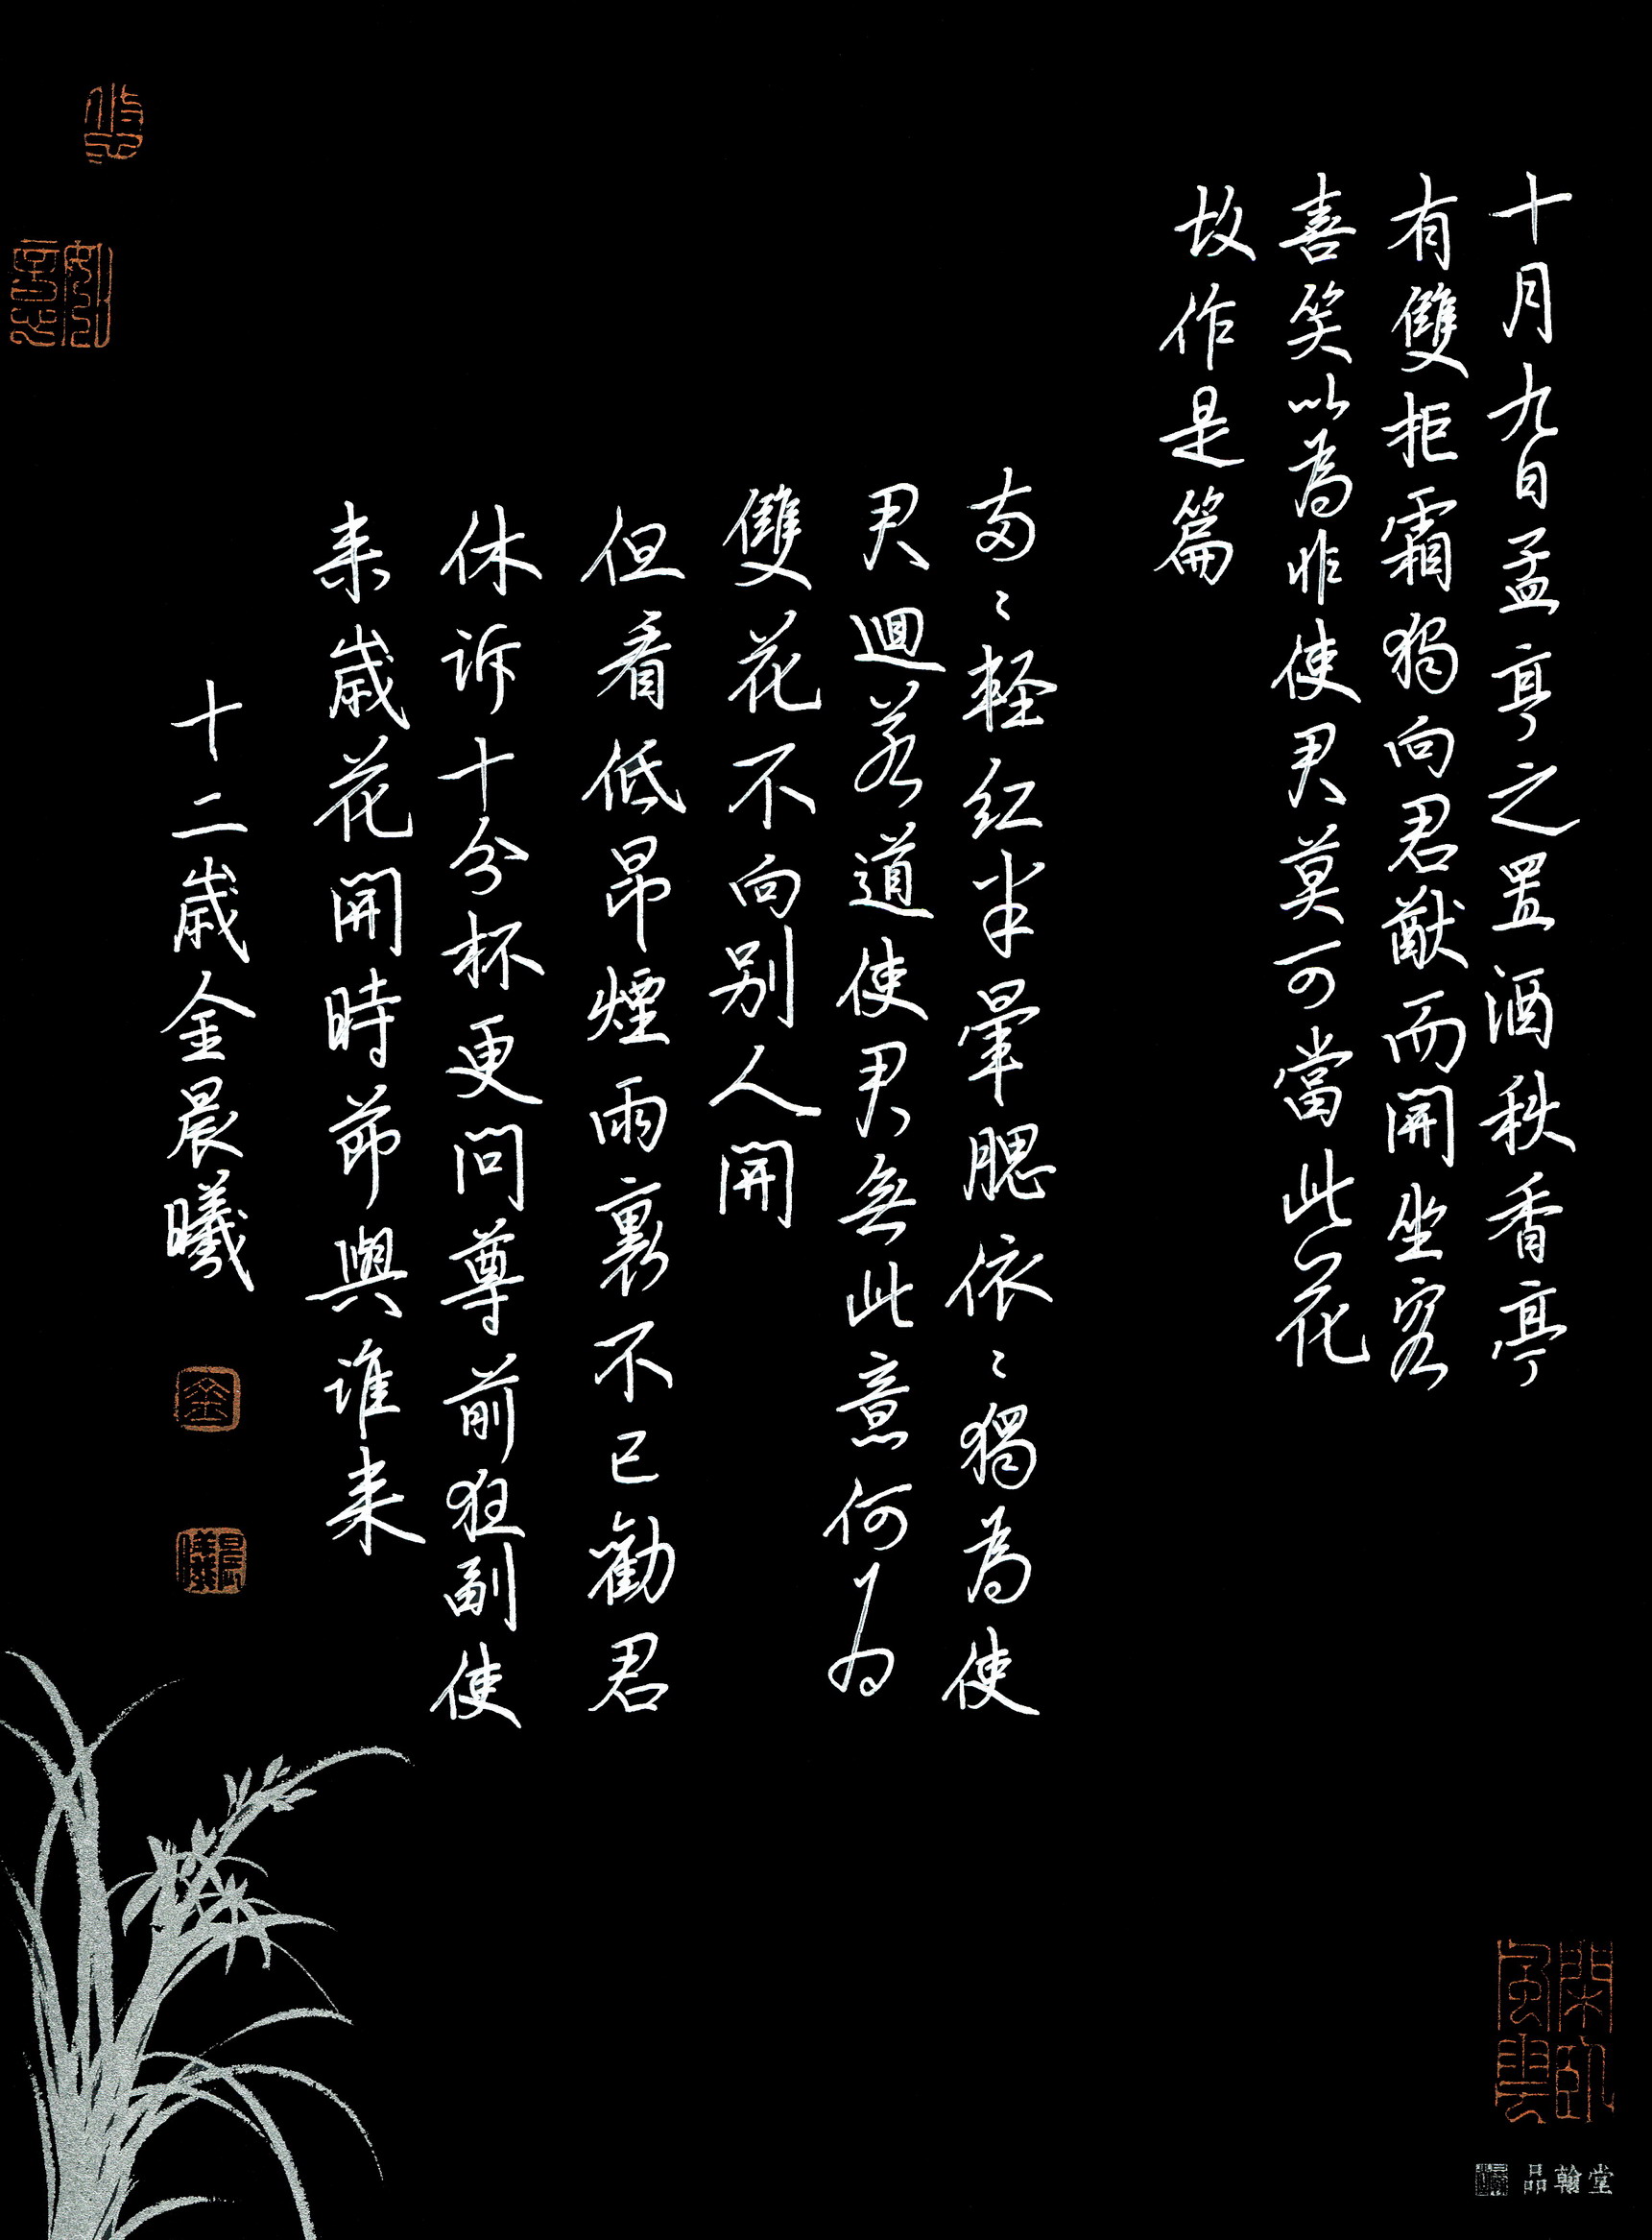 十月九日孟亨之置酒秋香亭
有雙拒霜獨向君猷而開坐客
喜笑以為非使君莫可當此花
故作是篇
兩々輕紅半暈腮依々獨為使
君迴若道使君無此意何為
雙花不向别人開
但看低昂煙雨裏不已勸君
休訴十分杯更問尊前狂副使
来歲花開時節與誰来
十二歲金晨曦
金
晨曦
品翰堂